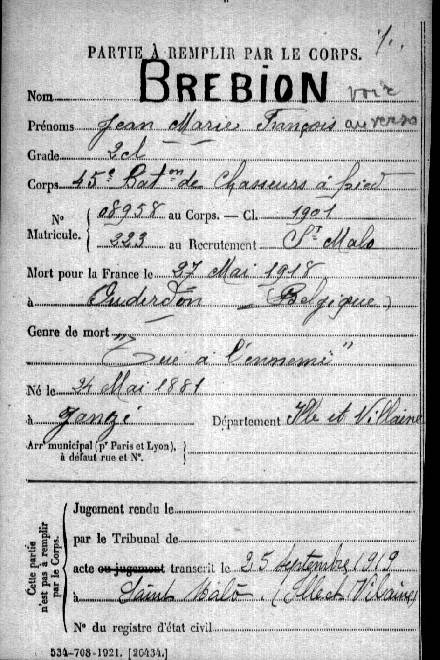 PARTIE À REMPLIR PAR LE CORPS.
Nom BREBION voir
Prénoms Jean Marie François au verso
Grade 2cl
Corps 45e Bat on de Chasseurs à pied
N° Matricule. { 08958 au Corps. — Cl. 1901
223 au Recrutement St Malo
Mort pour la France le 27 Mai 1918
à Ouderdon (Belgique)
Genre de mort "
Tué à l'ennemi"
Né le 24 Mai 1881
à Jangé Département Ille et Villaine
Arr t municipal (p r Paris et Lyon),
à défaut rue et N°.
Cette partie n'est pas à remplir par le Corps.
Jugement rendu le
par le Tribunal de
acte ou jugement transcrit le 25 Septembre 1919
à Saint Malo (Ille et Vilaine)
N° du registre d'état civil
534-708-1921. [26434.]